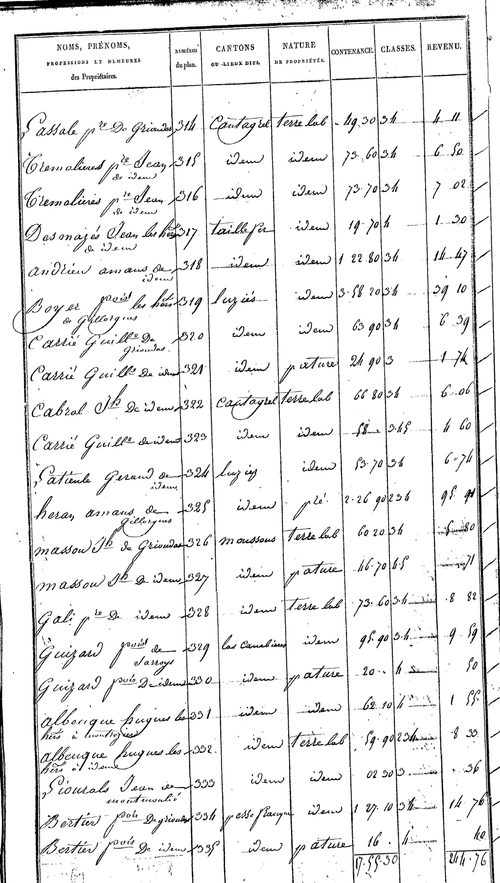 NOMS, PRÉNOMS, PROFESSIONS ET DEMEURES des Propriétaires. NUMÉROS du plan. CANTONS OU LIEUX DITS. NATURE DE PROPRIÉTÉS. CONTENANCE. CLASSES. REVENU.
Lassale pre De Grioudas 314 Cantagrel terre lab 49 30 34 4 11
Tremolieres pre Jean de idem 315 idem idem 73 60 34 6 50
Tremolieres pre Jean de idem 316 idem idem 73 70 34 7 02
Desmazés Jean les hers de idem 317 taillefer idem 19 70 4 1 30
andrieu amans de idem 318 idem idem 1 22 80 34 14 47
Boyer pois les hers de 319 luziés idem 3 58 20 34 39 10
Carrié Guille De Grioudas 320 idem idem 63 90 34 6 39
Carrié Guille De idem 321 idem pature 24 90 3 1 74
Cabrol Jh De idem 322 Cantagrel terre lab 66 80 34 6 06
Carrié Guille de idem 323 idem idem 58 345 4 60
Geraud de idem 324 luziés idem 53 70 34 6 74
heran amans de 325 idem pré 2 26 90 234 95
massou Jh de Grioudas 326 moussous terre lab 60 20 34 80
massou Jh De idem 327 idem pature 46 70 45 71
Gali pre De idem 328 idem terre lab 73 60 34 8 82
Guizard pois de 329 las Canabieres idem 95 90 34 9 59
Guizard pois De idem 330 idem pature 20 4 50
albouque hugues les hers à 331 idem idem 62 10 4 1 55
albouque hugues les hers à idem 332 idem terre lab 59 90 234 8 33
Jean de 333 idem idem 02 30 3 36
Bertier pois De grioudas 334 idem 1 27 10 34 14 76
Bertier pois De idem 335 idem pature 16 4 40
17 55 30 244 76